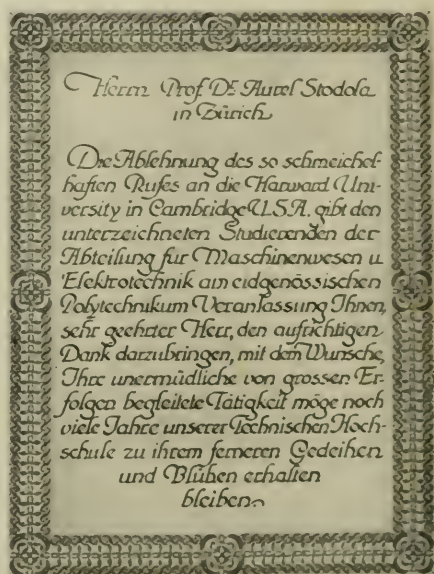 Herrn Prof. Dr. Aurel Stodola
in Zürich
Die Ablehnung des so schmeichel-
haften Rufes an die Harward Uni-
versity in Cambridge U.S.A. gibt den
unterzeichneten Studierenden der
Abteilung für Maschinenwesen u
Elektrotechnik am eidgenössischen
Polytechnikum Veranlassung Ihnen,
sehr geehrter Herr, den aufrichtigen
Dank darzubringen, mit dem Wunsche,
Ihre unermüdliche von grossen Er-
folgen begleitete Tätigkeit möge noch
viele Jahre unserer Technischen Hoch-
schule zu ihrem ferneren Gedeihen
und Blühen erhalten
bleiben.